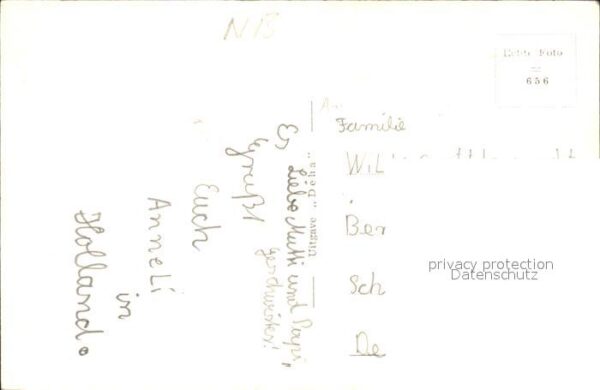 N B
Echte Foto
=
656
Liebe Mutti und Papi,
geschwister!
Es
grüßt
Euch
AnneLi
in
Holland.
Uitgave „Déha"
Familie
Wil
Ber
Sch
De
privacy protection
Datenschutz